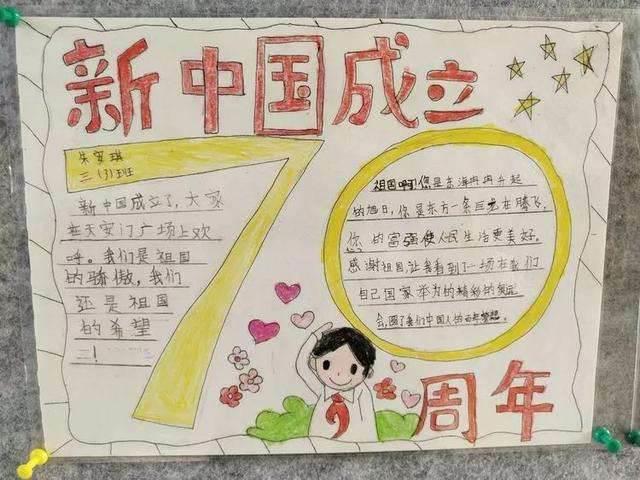 新中国成立
70
朱安琪
三(3)班
新中国成立了,大家
在天安门广场上欢
呼。我们是祖国
的骄傲,我们
还是祖国
的希望
!
祖国啊!您是东海冉冉升起
的旭日,您是东方一条巨龙在腾飞,
您的富强使人民生活更美好。
感谢祖国让我看到了一场在我们
自己国家举办的精彩的奥运
会,圆了我们中国人的百年梦想。
周年